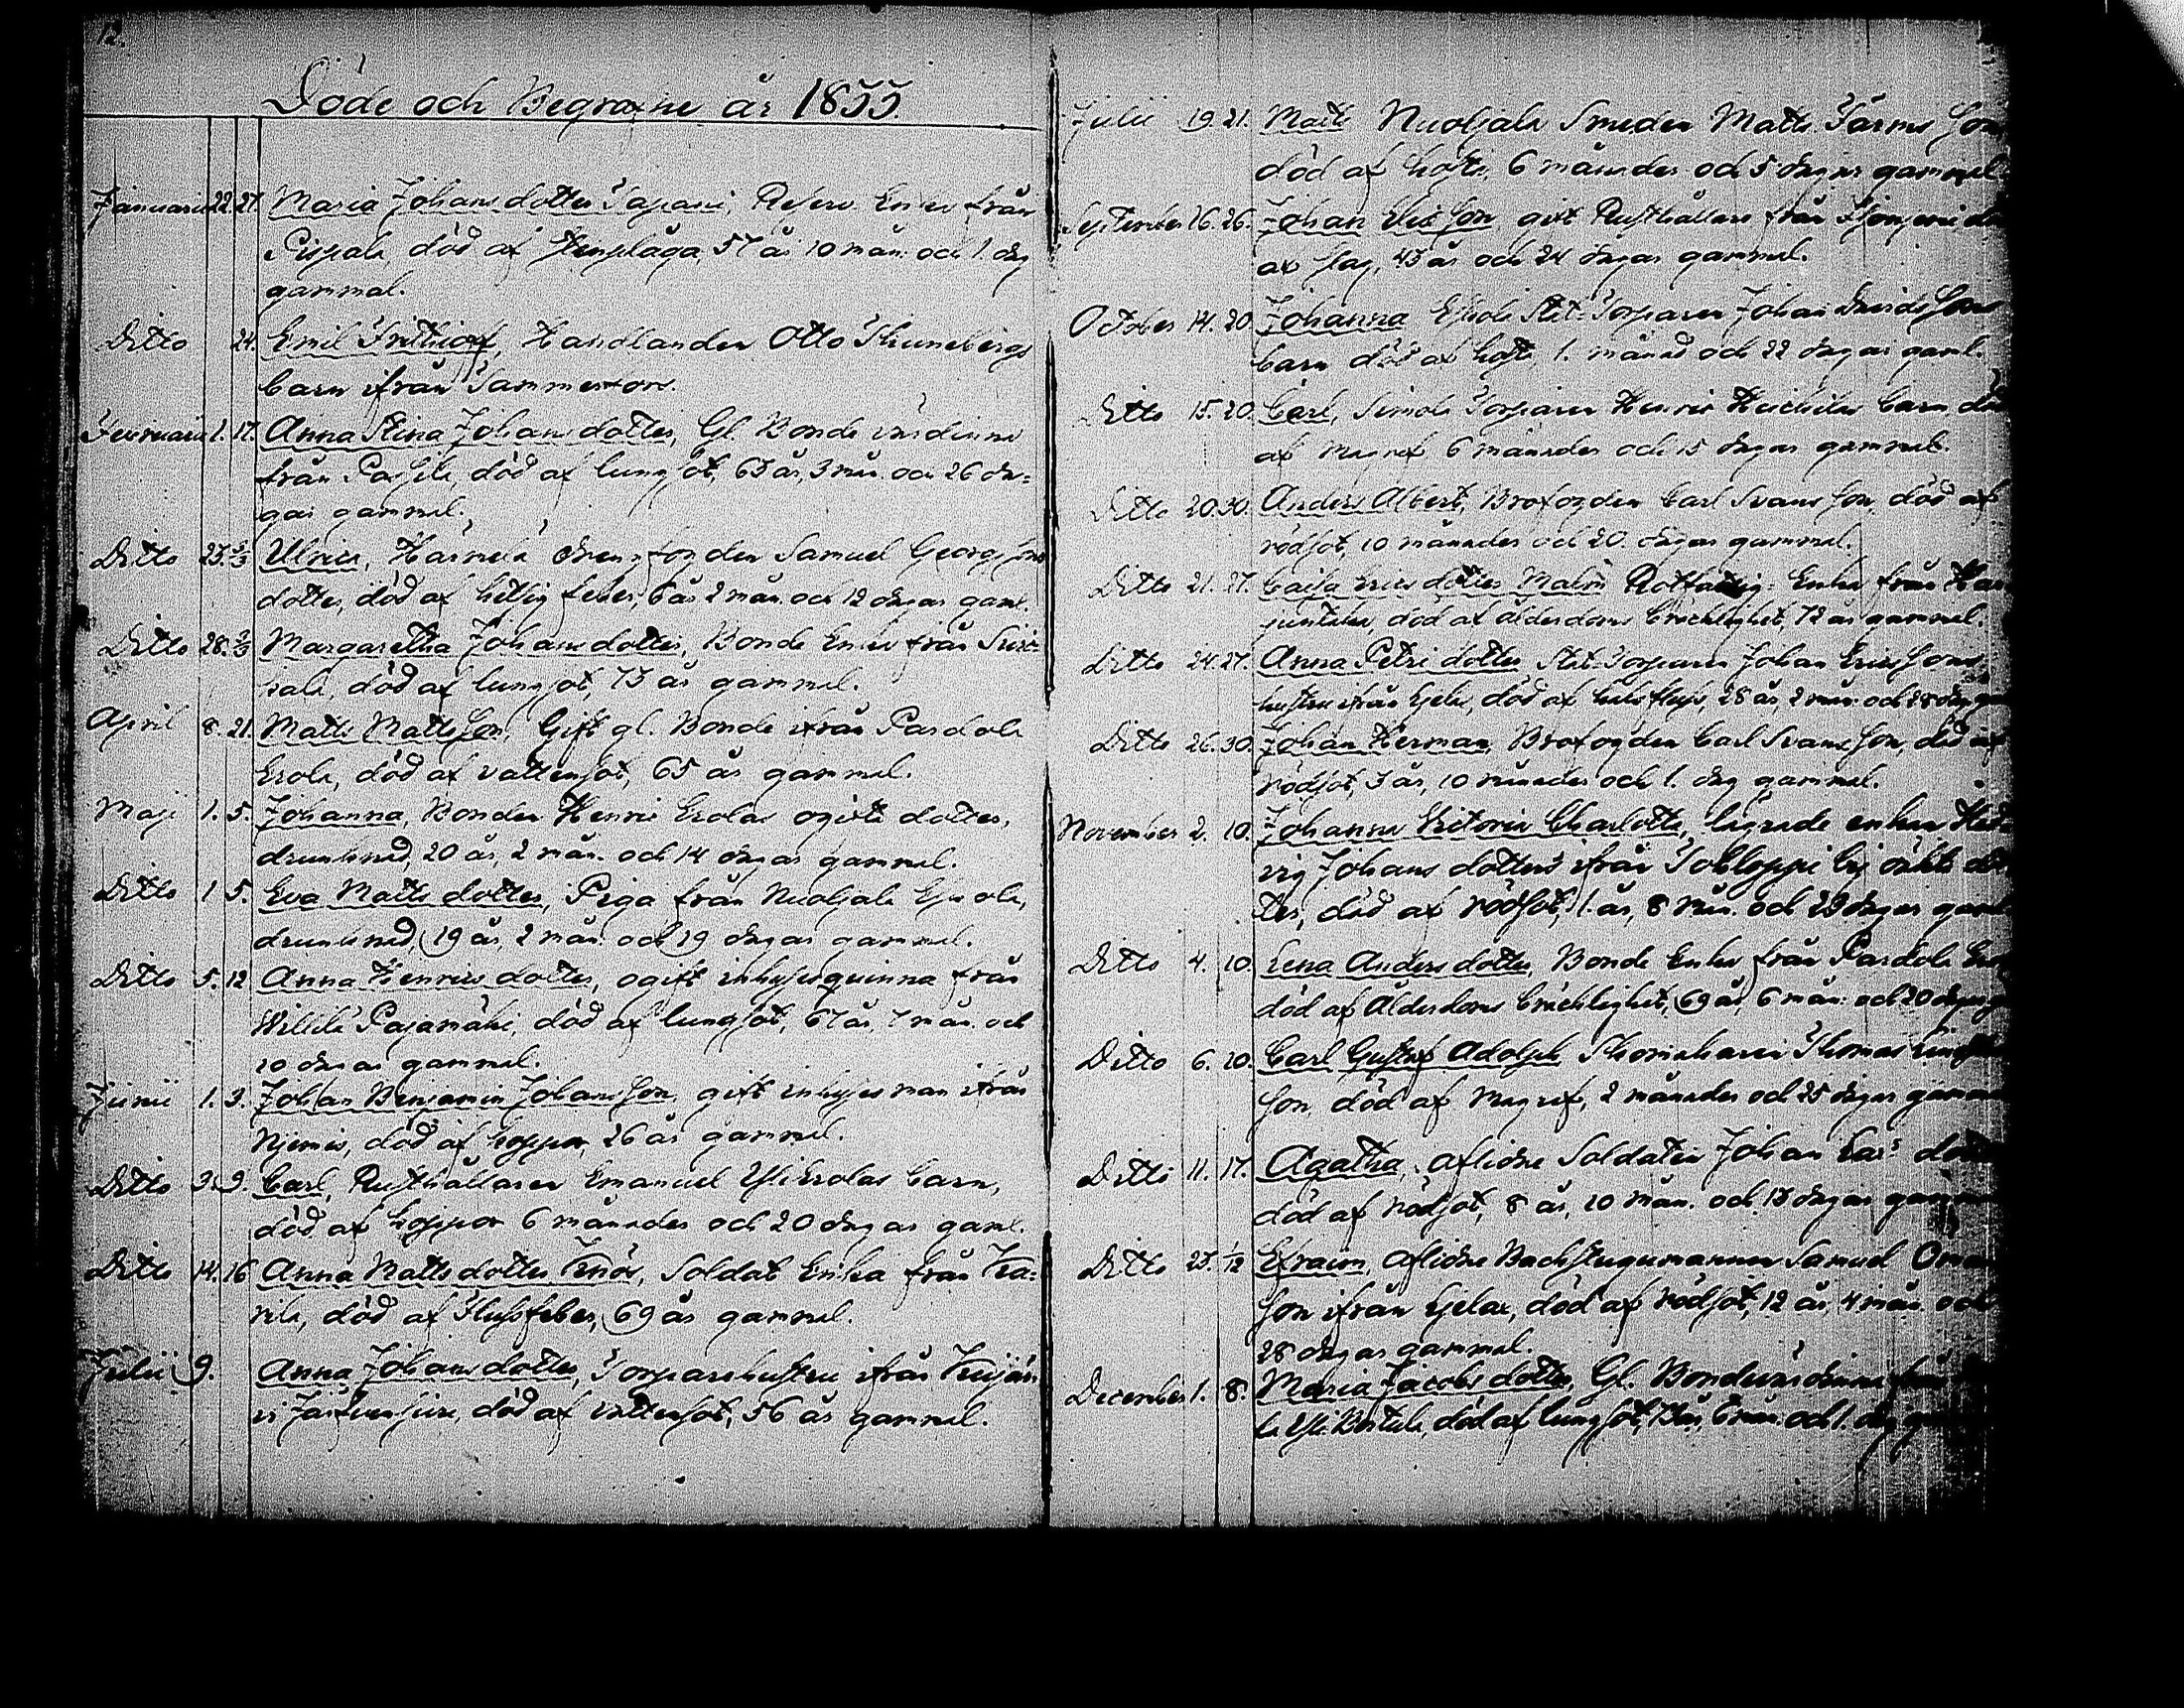 12.
Döde och Begrafne år 1855.
Januarii 22. 27. Maria Johans dotter Tapani, Reserv Enka från
Pispala, död af stenplåga, 57 år 10 mån. och 1. dag
gammal.
Ditto 24. Emil Frithiof, Handlanden Otto Thunebergs
barn ifrån Tammerfors.
Februarii 1. 17. Anna Stina Johans dotter, Gl. Bonde värdinna
från död af lungsot, 63 år, 3 mån. och 26 da-
gar gammal.
Ditto 23. 4/3 Ulrica, Härmälä Drengfogden Samuel Georgsons
dotter, död af hettig feber, 6 år 2 mån. och 12 dagar gaml.
Ditto 28. Margaretha Johans dotter, Bonde Enka från
död af lungsot, 73 år gammal.
April 8. 21. Matts Matts Son, Gift gl. Bonde ifrån Pardola
Erola, död af vattensot, 65 år gammal.
Maji 1. 5. Johanna, Bonden Henric Erolas ogifta dotter,
drunknad, 20 år, 2 mån. och 14 dagar gammal.
Ditto 1. 5. Eva Matts dotter, Piga från Nuoljala
drunknad, 19 år, 2 mån. och 19 dagar gammal.
Ditto 5. 12 Anna Henrics dotter, ogift inhyses quinna från
Willilä Pajamäki, död af lungsot, 67 år, 7 mån. och
10 dagar gammal.
Junii 1. 3. Johan Benjamin Johansson, gift inhyses man ifrån
Njemis, död af koppor, 26 år gammal.
Ditto 3. 9. Carl, Rusthållaren Emanuel Yli Erolas barn,
död af koppor 6 månader och 20 dagar gaml.
Ditto 14. 16 Anna Matts dotter Knös, Soldat Enka från
död af Flussfeber, 69 år gammal.
Julii 9. Anna Johans dotter, Torparehustru ifrån
död af vattensot, 56 år gammal.
Julii 19. 21. Matts Nuoljala Smeden Matts Färms Son
död af hosta, 6 månader och 5 dagar gammal.
September 16. 26. Johan Eric Son gift Rusthållare från
af slag, 43 år och 24 dagar gammal.
October 14. 20. Johanna Torparen Johan Davids Sons
barn död af hosta, 1. månad och 22 dagar gaml.
Ditto 15. 20. Carl, Simola Torparen Henric Heickilas barn
af Magref 6 månader och 15 dagar gammal.
Ditto 20. 30. Anders Albert, Brofogden Carl Svans Son, död af
rödsot, 10 månader och 20 dagar gammal.
Ditto 21. 27. Caisa Erics dotter Malm Enka från
död af ålderdoms bräcklighet, 72 år gammal.
Ditto 24. 27. Anna Petri dotter, Stat-Torparen Johan Erics Sons
hustru ifrån Hjelax, död af 28 år, 2 mån. och 28 dag.
Ditto 26. 30. Johan Herman, Brofogden Carl Svans Son, död af
rödsot, 3 år, 10 månader och 1. dag gammal.
November 2. 10. Johanna Victoria Charlotta, lägrade enkan Hed-
vig Johans dotters ifrån by oäkta dot-
ter, död af rödsot, 1. år, 8 mån. och 23 dagar
Ditto 4. 10. Lena Anders dotter, Bonde Enka från Pardola
död af Ålderdoms bräcklighet, 69 år, 6 mån. och 20 dagar
Ditto 6. 10. Carl Gustaf Adolph Skomakaren Thomas
Son, död af Magref, 2 månader och 25 dagar
Ditto 11. 17. Agatha, aflidne Soldaten Johan
död af rödsot, 8 år, 10 mån. och 13 dagar
Ditto 23. 1/12 Efraim, aflidne Backstugumannen Samuel
Son ifrån Hjelax, död af rödsot, 12 år, 4 mån. och
28 dagar gammal.
December 1. 8. Maria Jacobs dotter, Gl. Bondevärdinna
död af lungsot, och 1. dag